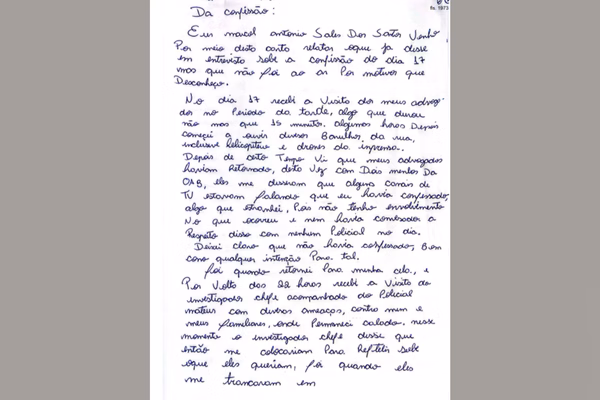 fls. 1973
Da confissão:
Eu marcel antonio Sales Dos Santos Venho
Por meio desta carta relatar oque ja disse
em entrevista sobe a confissão do dia 17
mas que não foi ao ar Por motivos que
Desconheço.
No dia 17 recebi a Visita dos meus advoga
dos no Periodo da tarde, algo que durou
não mas que 15 minutos. algumas horas Depois
começei a ouvir diversos Barulhos da rua,
inclusive helicoptero e drones da imprensa.
Depois de certo Tempo Vi que meus advogados
haviam Retornado, desta Vez com Dois membros Da
OAB, eles me disseram que alguns canais de
TV estavam falando que eu havia confessado,
algo que estranhei, Pois não tenho envolvimento
No que ocorreu e nem havia comversado a
Respeito disso com nenhum Policial no dia.
Deixei claro que não havia confessado, Bem
como qualquer intenção Para tal.
foi quando retornei Para minha cela, e
Por Volta das 22 horas recebi a Visita do
investigador chefe acompanhado do Policial
mateus com diversas ameaças, contra mim e
meus familiares, onde Permaneci calado. nesse
momento o investigador chefe disse que
então me colocariam Para Refletir sobe
oque eles queriam, foi quando eles
me trancaram em